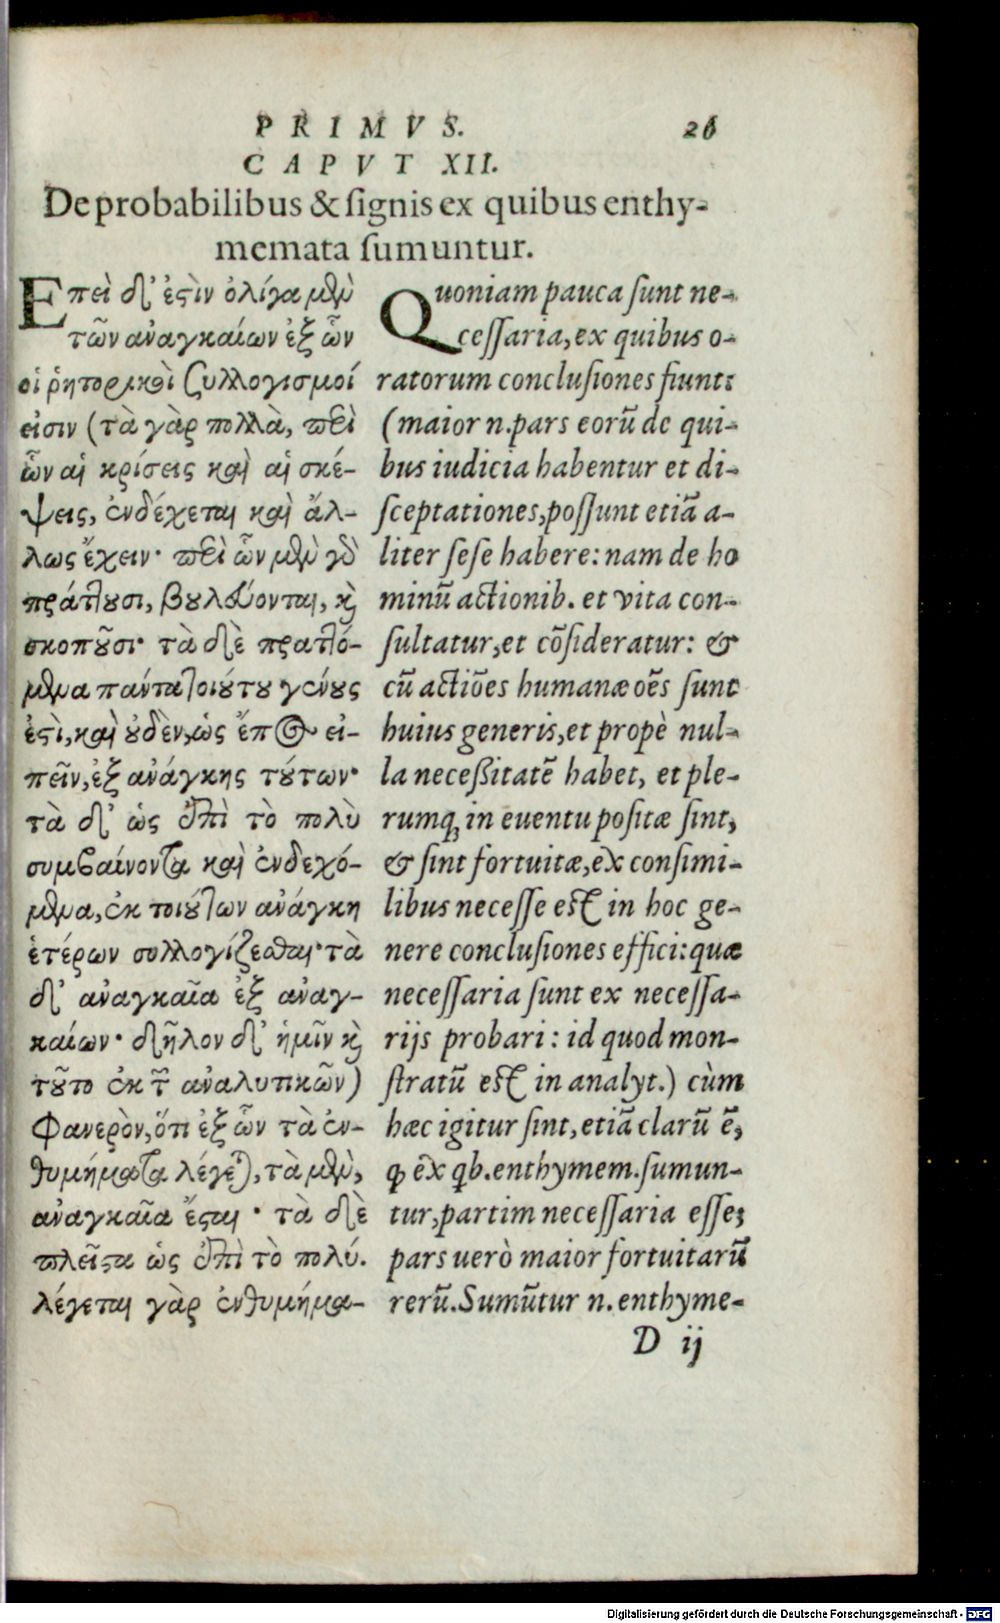 PRIMVS. 26
CAPVT XII.
De probabilibus & ſignis ex quibus enthy-
memata ſumuntur.
Επεὶ δ' ἐϛὶν ὀλίγα μὲν
τῶν ἀναγκαίων ἐξ ὧν
οἱ ῥητορικοὶ ζυλλογισμοί
εἰσιν (τὰ γὰρ πολλὰ, περὶ
ὧν αἱ κρίσεις καὶ αἱ σκέ-
ψεις, ἐνδέχεται καὶ ἄλ-
λως ἔχειν· περὶ ὧν μὲν γὸ
πράττουσι, βουλεύονται, κὶ
σκοποῦσι· τὰ δὲ πραττό-
μενα πάντα τοιούτου γένους
ἐϛὶ, καὶ οὐδὲν, ὡς ἔπος εἰ-
πεῖν, ἐξ ἀνάγκης τούτων·
τὰ δ' ὡς ἐπὶ τὸ πολὺ
συμβαίνοντα καὶ ἐνδεχό-
μενα, ἐκ τοιούτων ἀνάγκη
ἑτέρων συλλογίζεσθαι· τὰ
δ' ἀναγκαῖα ἐξ ἀναγ-
καίων· δῆλον δ' ἡμῖν κὶ
τοῦτο ἐκ τῶν ἀναλυτικῶν)
Φανερὸν, ὅτι ἐξ ὧν τὰ ἐν-
θυμήματα λέγεται, τὰ μὲν,
ἀναγκαῖα ἔϛαι· τὰ δὲ
πλεῖϛα ὡς ἐπὶ τὸ πολύ.
λέγεται γὰρ ἐνθυμήμα-
Quoniam pauca ſunt ne-
ceſſaria, ex quibus o-
ratorum concluſiones fiunt:
(maior n. pars eorū de qui-
bus iudicia habentur et di-
ſceptationes, poſſunt etiā a-
liter ſeſe habere: nam de ho
minū actionib. et vita con-
ſultatur, et cōſideratur: &
cū actiōes humanæ oēs ſunt
huius generis, et propè nul-
la neceßitatē habet, et ple-
rumq; in euentu poſitæ ſint,
& ſint fortuitæ, ex conſimi-
libus neceſſe eſt in hoc ge-
nere concluſiones effici: quæ
neceſſaria ſunt ex neceſſa-
rijs probari: id quod mon-
ſtratū eſt in analyt.) cùm
hæc igitur ſint, etiā clarū ē,
ꝙ ex qb. enthymem. ſumun-
tur, partim neceſſaria eſſe;
pars uerò maior fortuitarū
rerū. Sumūtur n. enthyme-
D ij
Digitalisierung gefördert durch die Deutsche Forschungsgemeinschaft - DFG